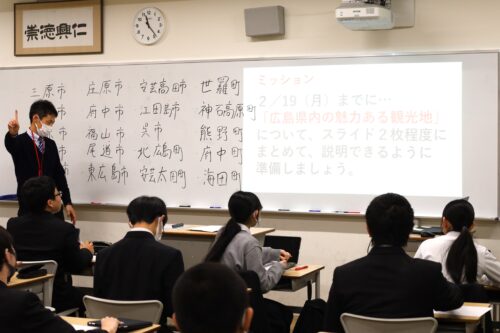 仁興徳崇
三原市
庄原市
安芸高田市
世羅町
府中市
江田島市
神石高原町
福山市
呉市
熊野町
尾道市
北広島町
府中町
東広島市
安芸太田町
海田町
ミッション
2/19(月)までに…
「広島県内の魅力ある観光地」
について、スライド2枚程度に
まとめて、説明できるように
準備しましょう。